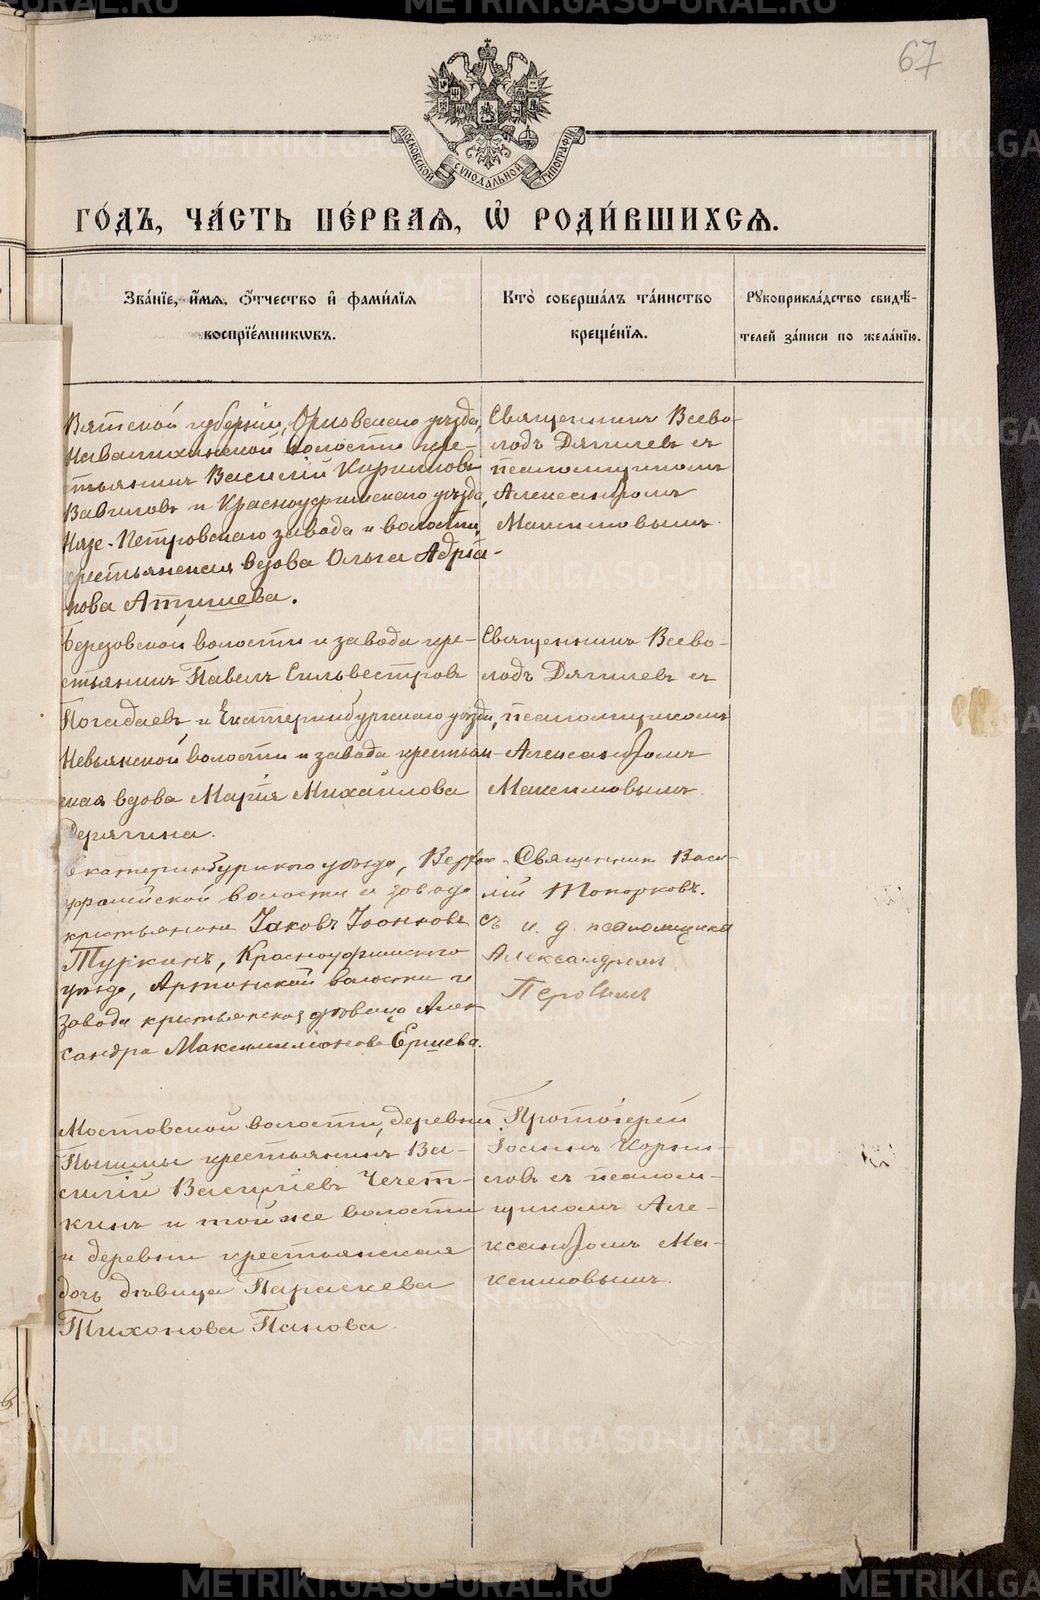 67
МОСКОВСКОЙ СѴНОДАЛЬНОЙ ТИПОГРАФІИ
ГО́ДЪ, ЧА́СТЬ ПЕ́РВАЯ, Ѽ РОДИ́ВШИХСЯ.
Зва́нїе, и҆́мя, ѻ҆́тчество и҆ фами́лїя
воспрїе́мникωвъ.
Кто̀ соверша́лъ та́инство
креще́нїя.
Рꙋкоприкла́дство свидѣ́-
телей за́писи по жела́нїю.
Вятской губерніи, Орловскаго уѣзда,
волости кре-
стьянинъ Василій Кирилловъ
Вавиловъ и Красноуфимскаго уѣзда,
Нязе-Петровскаго завода и волости,
крестьянская вдова Ольга Адріа-
нова Атишева.
Священникъ Всево-
лодъ Дягилевъ съ
псаломщикомъ
Александромъ
Максимовымъ.
Березовской волости и завода кре-
стьянинъ Павелъ Сильвестровъ
Погадаевъ и Екатеринбургскаго уѣзда,
Невьянской волости и завода крестьян-
ская вдова Марія Михайлова
Дерягина.
Священникъ Всево-
лодъ Дягилевъ съ
псаломщикомъ
Александромъ
Максимовымъ.
Екатеринбургскаго уѣзда, Верхне-
уфалейской волости и завода
крестьянинъ Іаковъ Іоанновъ
Туркинъ, Красноуфимскаго
уѣзда, Артинской волости и
завода крестьянская дѣвица Алек
сандра Максимиліонова Ершева.
Священникъ Васи-
лій Топорковъ.
съ и. д. псаломщика
Александромъ
Перовымъ
Мостовской волости, деревни
Пышмы крестьянинъ Ва-
силій Васильевъ Чечет-
кинъ и той же волости
и деревни крестьянская
дочь дѣвица Параскева
Тихонова Панова.
Протоіерей
Іоаннъ Корни-
ловъ съ псалом-
щикомъ Але-
ксандромъ Ма-
ксимовымъ.
METRIKI.GASO-URAL.RU